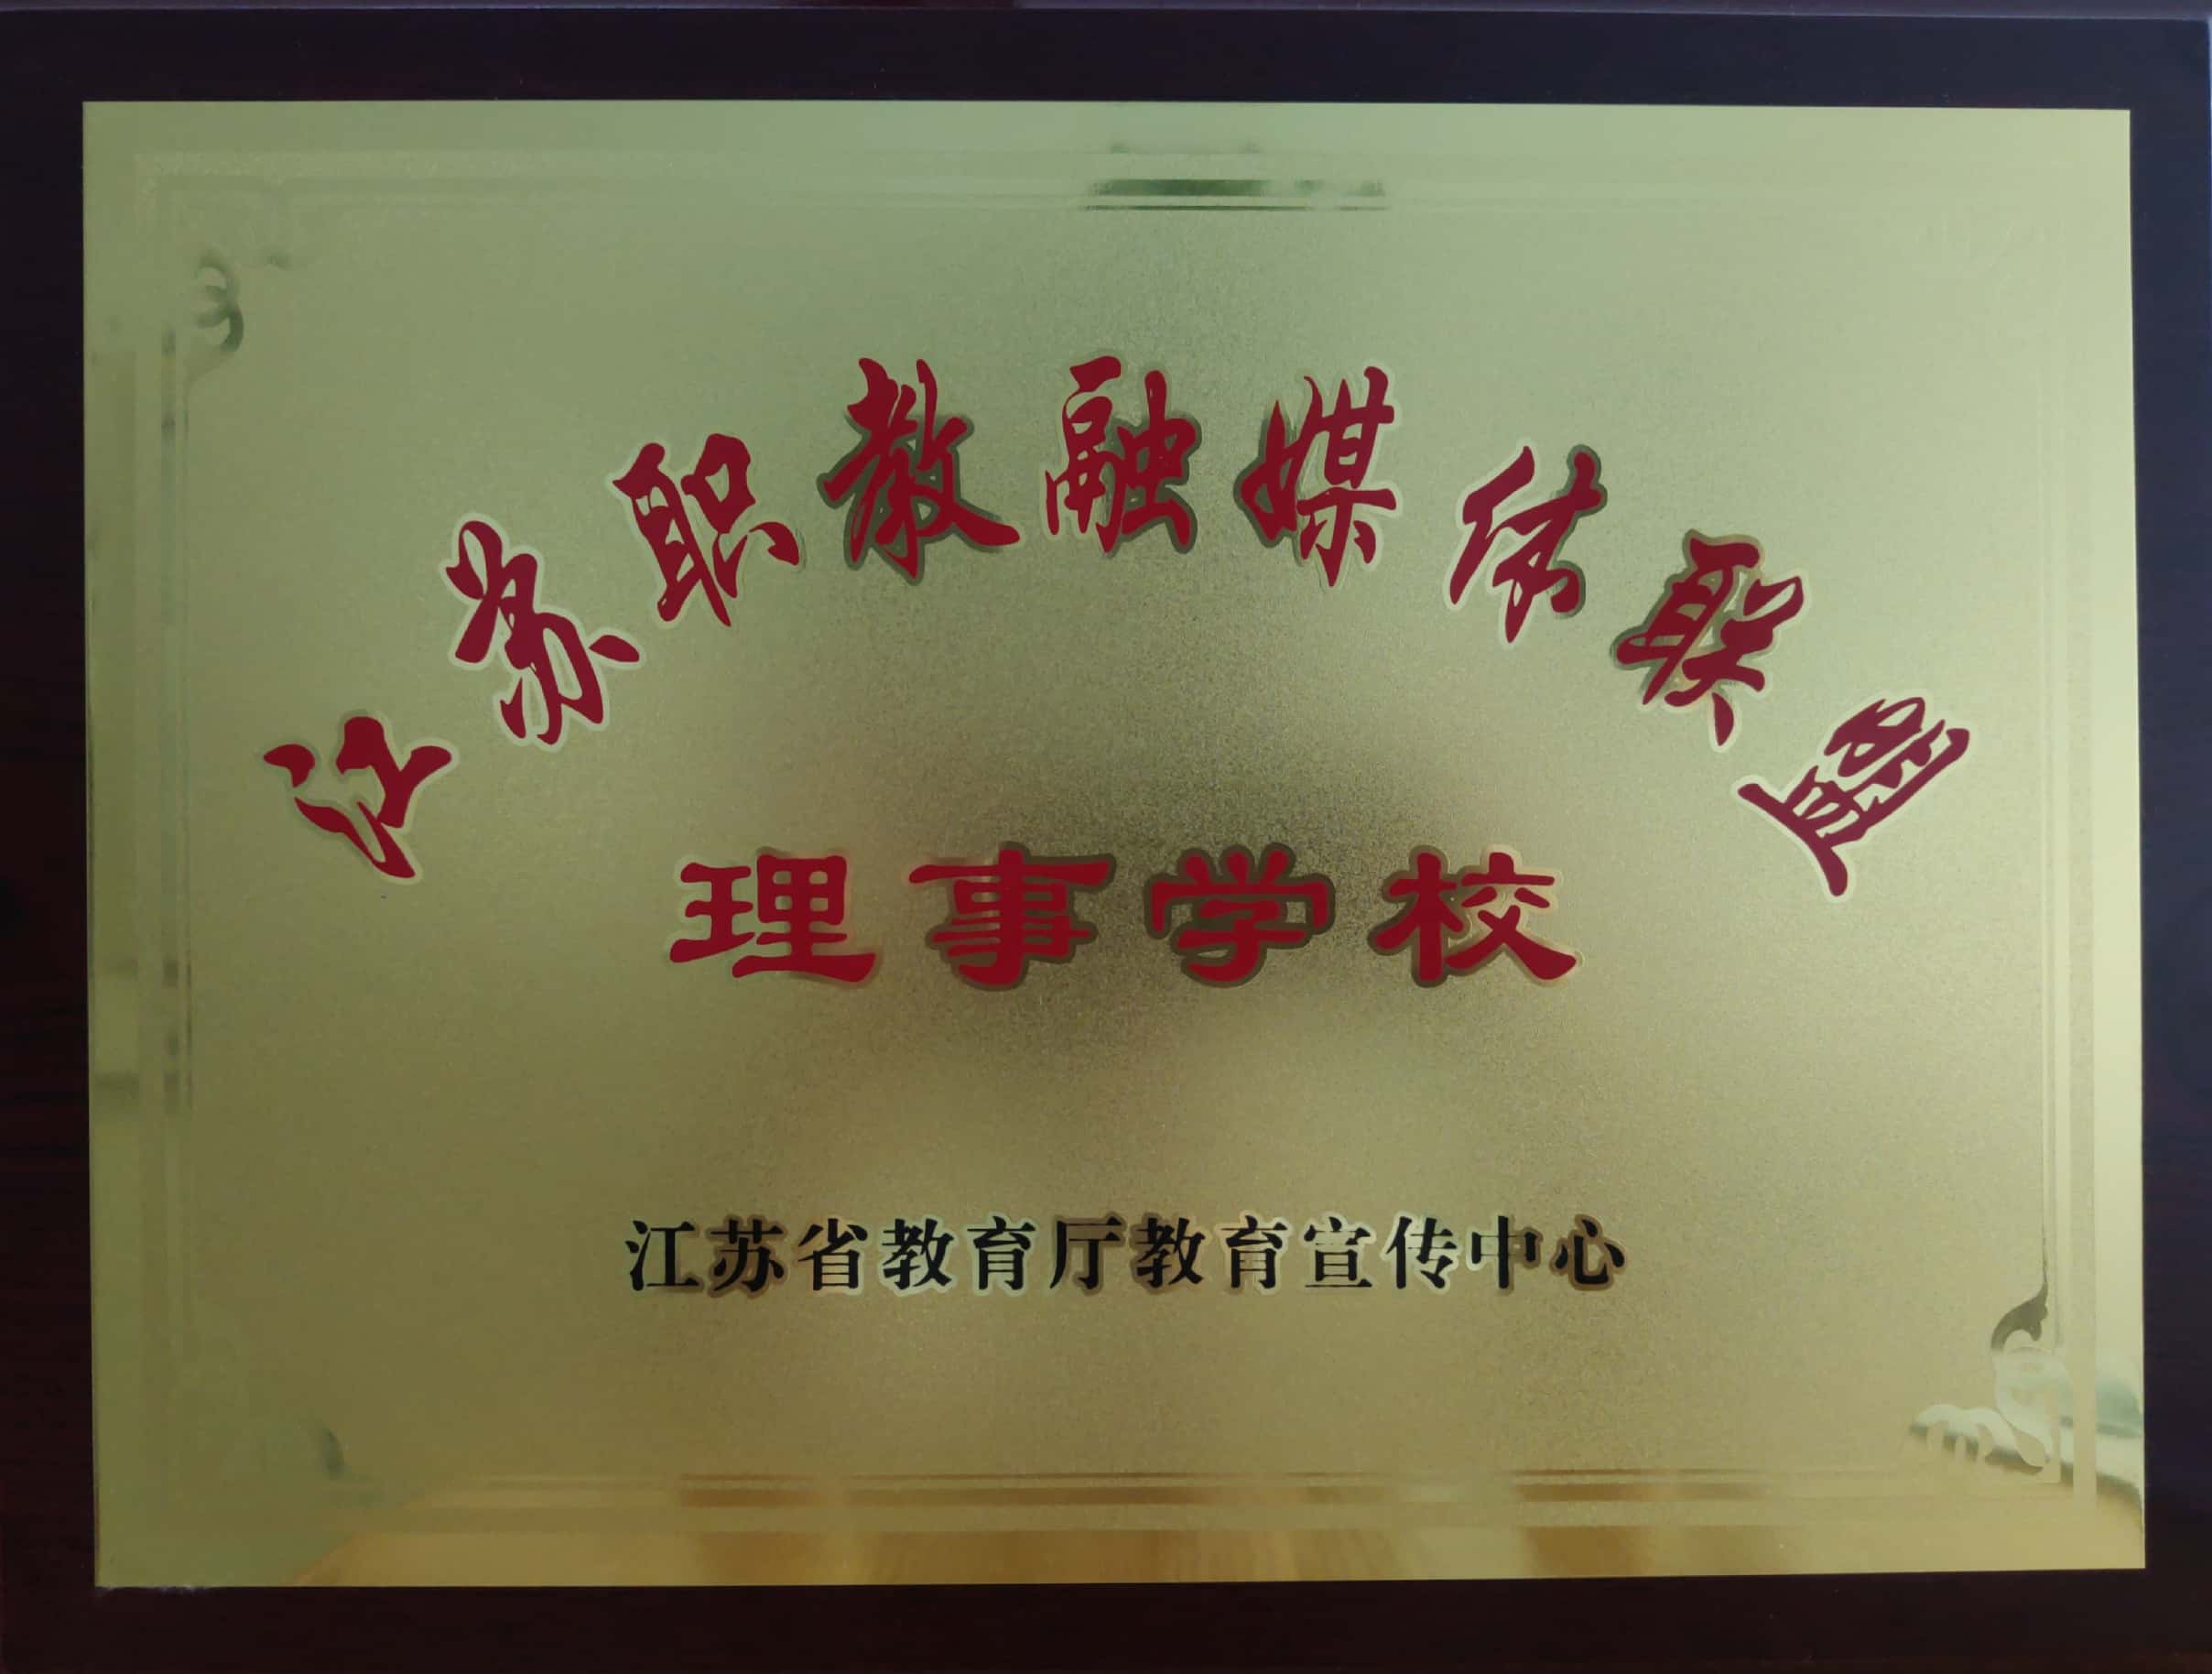 江苏职教融媒体联盟
理事学校
江苏省教育厅教育宣传中心